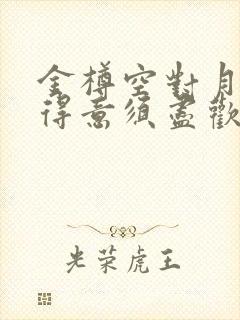 金樽空對月
得意須盡歡
光荣虎王